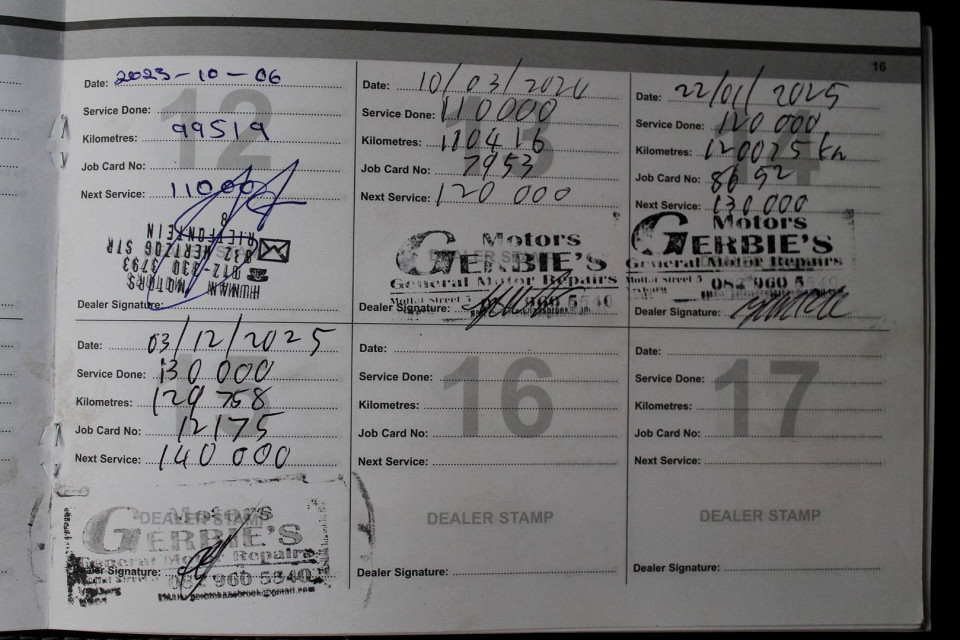 16
12
Date: 2023-10-06
Service Done:
Kilometres: 99519
Job Card No:
Next Service: 11000
8
RIETFONTEIN
832 HERTZOG STR
012-330 3793
HUMAN MOTORS
Dealer Signature:
13
Date: 10/03/2024
Service Done: 110000
Kilometres: 110416
Job Card No: 7953
Next Service: 120 000
DEALER STAMP
Motors
GERBIE'S
General Motor Repairs
Street 5
960 5540
Dealer Signature:
14
Date: 22/01/2025
Service Done: 120 000
Kilometres: 120075 km
Job Card No: 8692
Next Service: 130 000
Motors
GERBIE'S
General Motor Repairs
Street 5
082 960 5540
Dealer Signature:
15
Date: 03/12/2025
Service Done: 130 000
Kilometres: 129 758
Job Card No: 12175
Next Service: 140 000
DEALER STAMP
Motors
GERBIE'S
General Motor Repairs
Street 5
082 960 5540
Dealer Signature:
16
Date:
Service Done:
Kilometres:
Job Card No:
Next Service:
DEALER STAMP
Dealer Signature:
17
Date:
Service Done:
Kilometres:
Job Card No:
Next Service:
DEALER STAMP
Dealer Signature: